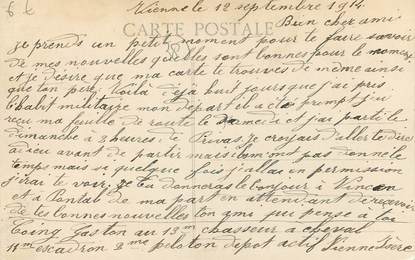 Vienne le 12 septembre 1914
CARTE POSTALE
Bien cher ami
je prends un petit moment pour te faire savoir
de mes nouvelles qu'elles sont bonnes pour le moment
et je désire que ma carte te trouves de même ainsi
que ton père Voila déja huit jours que j'ai pris
l'habit militaire mon départ a été prompt j'ai
reçu ma feuille de route le samedi et j'ai parti le
dimanche a 3 heures de Privas je croyais d'aller te dire
adieu avant de partir mais ils m'ont pas donné le
temps mais se quelque fois j'allai en permission
j'irai te voir, je tu donneras le bonjour à Vincen
et a Pontal de ma part en attendant de recevoir
de tes bonnes nouvelles ton ami qui pense a toi
Gaston au 13me chasseur a cheval
11me escadron 2me peloton depot actif Vienne Isère